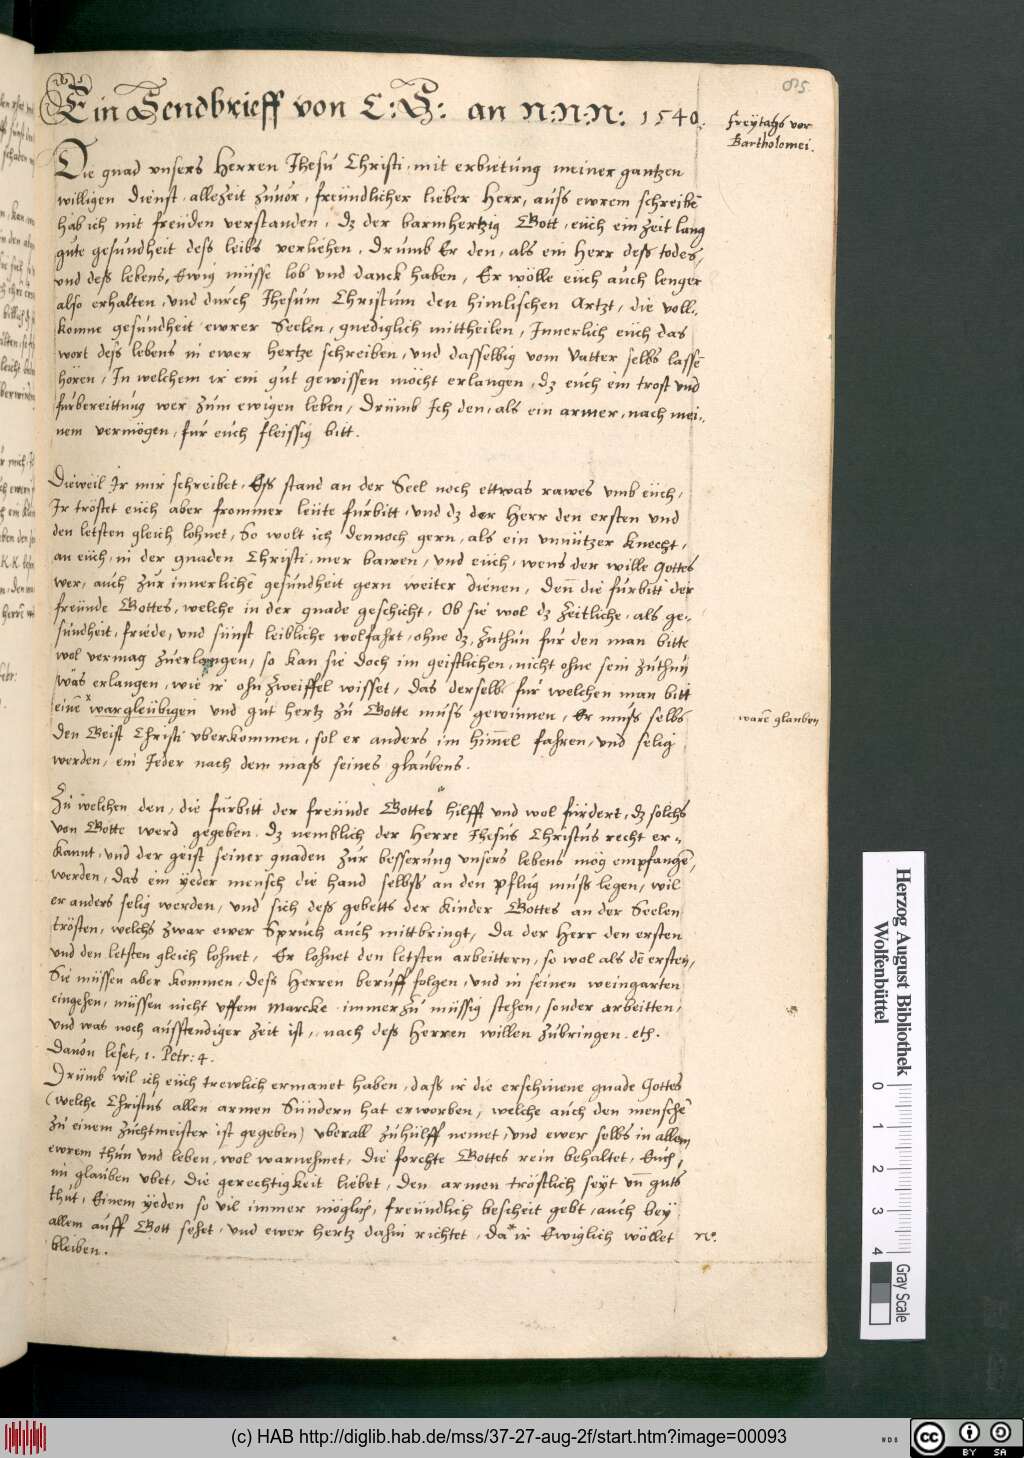 85
Ein Sendbrieff von C: S: an N: N: N: 1540.
Freÿtags vor
Bartholomei.
Die gnad vnsers Herren Jhesu Christi, mit erbietung meiner gantzen
willigen dienst, allezeit zuuor, freündlicher lieber Herr, auss ewrem schreibē
hab ich mit freuden verstanden, dz der barmhertzig Gott, eüch ein Zeit lang
gute gesundheit dess leibs verliehen, Drumb Er den, als ein Herr dess todes,
vnd dess lebens, Ewig müsse lob vnd danck haben, Er wölle eüch auch lenger
also erhalten, vnd durch Jhesum Christum den himlischen Artzt, die voll-,
komne gesundheit ewrer Seelen, gnediglich mittheilen, Innerlich eüch das
wort dess lebens in ewer hertze schreiben, vnd dasselbig vom Vatter selbs lassē
hören, In welchem ir ein gut gewissen möcht erlangen, dz euch ein trost vnd
furbereittung wer zum ewigen leben, Drümb Ich den, als ein armer, nach mei-,
nem vermögen, für euch fleissig bitt.
Dieweil Ir mir schreibet, Ess stand an der Seel noch ettwas rawes vmb eüch,
Ir tröstet eüch aber frommer leüte furbitt, vnd dz der Herr den ersten vnd
den letsten gleich lohnet, So wolt ich dennoch gern, als ein vnnützer Knecht,
an eüch, in der gnaden Christi, mer bawen, vnd eüch, wens der wille Gottes
wer, auch zur innerlichē gesundheit gern weiter dienen, Den̄ die furbitt der
freünde Gottes, welche in der gnade geschicht, Ob sie wol dz Zeitliche, als ge-,
sundheit, friede, vnd sünst leibliche wolfahrt, ohne dz Zuthun für den man bitte
wol vermag zuerlangen, so kan sie doch im geistlichen, nicht ohne sein zuthun
was erlangen, wie ir ohn Zweiffel wisset, das derselb für welchen man bitt
einē * wargleübigen vnd gut hertz zu Gotte muss gewinnen, Er muss selbs
den Geist Christi vberkommen, sol er anders im him̄el fahren, vnd selig
werden, ein Jeder nach dem mass seines glaubens.
warē glauben
Zu welchen den, die furbitt der freünde Gottes hilfft vnd wol fürdert, dz solchs
von Gotte werd gegeben. Dz nemblich der Herre Jhesus Christus recht er-,
kannt, vnd der geist seiner gnaden zur besserung vnsers lebens mög empfangē,
werden, das ein ÿeder mensch die hand selbss an den pflug muss legen, wil
er anders selig werden, vnd sich dess gebetts der Kinder Gottes an der Seelen
trösten, welchs zwar ewer Spruch auch mittbringt, Da der Herr den ersten
vnd den letsten gleich lohnet, Er lohnet den letsten arbeittern, so wol als dē ersten,
Sie müssen aber kommen, dess Herren beruff folgen, vnd in seinen weingarten
eingehen, müssen nicht vffem Marcke immerzu müssig stehen, sonder arbeitten,
vnd was noch ausstendiger Zeit ist, nach dess Herren willen zubringen. etc.
Dauon leset, 1. Petr: 4.
Drümb wil ich eüch trewlich ermanet haben, dass ir die erschinene gnade Gottes
(welche Christus allen armen Sündern hat erworben, welche auch den menschē
zu einem Zuchtmeister ist gegeben) vberall zuhülff nemet, vnd ewer selbs in allem
ewrem thun vnd leben, wol warnehmet, die forchte Gottes rein behaltet, Euch,
im glauben vbet, die gerechtigkeit liebet, den armen tröstlich seÿt vn̄ guts
thut, Einem ÿeden so vil immer müglich, freündlich bescheit gebt, auch beÿ
allem auff Gott sehet, vnd ewer hertz dahin richtet, da * ir Ewiglich wöllet
bleiben.
Herzog August Bibliothek
Wolfenbüttel
0 1 2 3 4
Gray Scale
(c) HAB http://diglib.hab.de/mss/37-27-aug-2f/start.htm?image=00093
WDB
cc BY SA